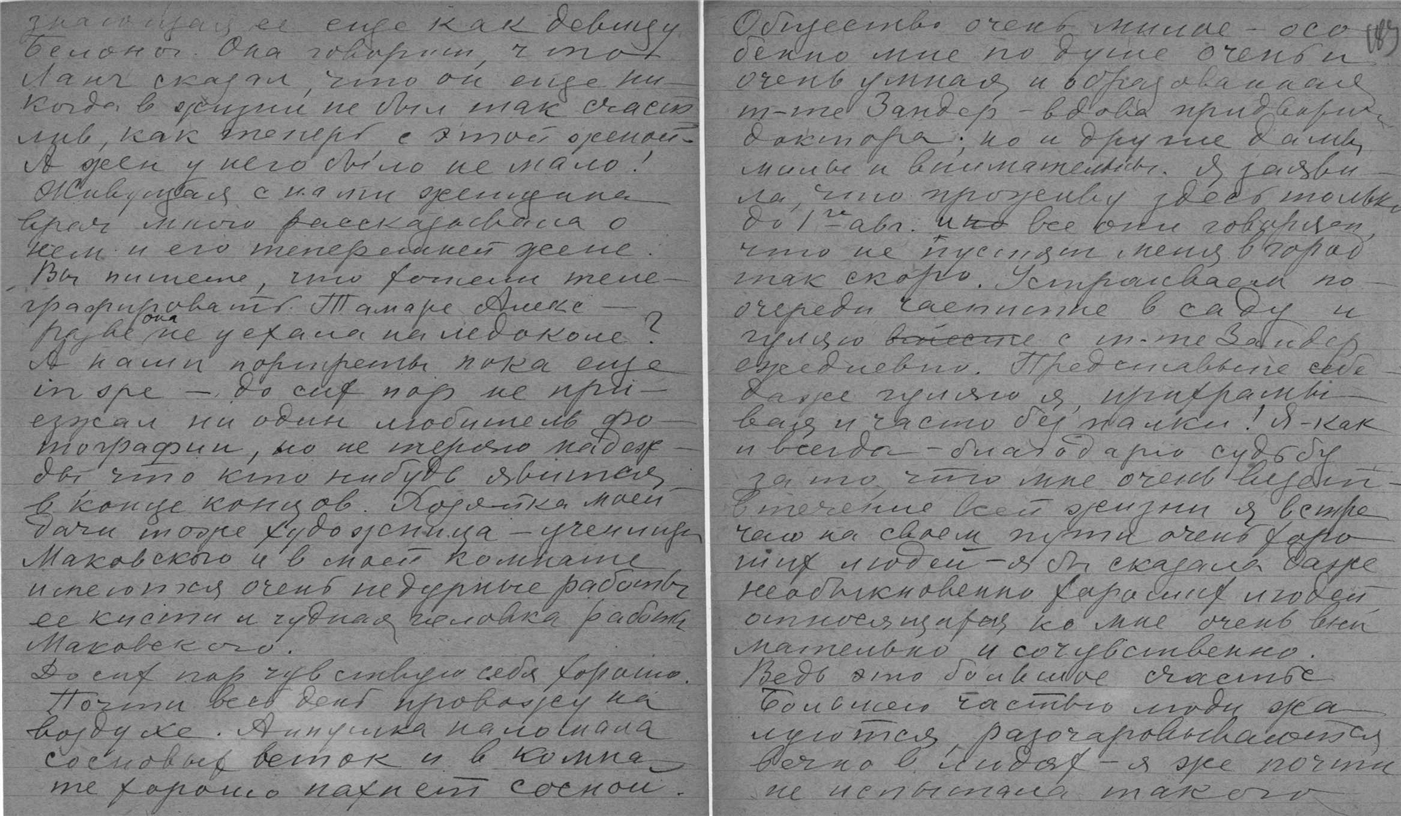 знающая ее еще как девицу
Она говорит, что
Ланг сказал, что он еще ни-
когда в жизни не был так счаст-
лив, как теперь с этой женой.
А жен у него было не мало!
Живущая с нами женщина
врач много рассказывала о
нем и его теперешней жене.
Вы пишете, что хотели теле-
графировать Тамаре Алекс-
она не уехала на ледоколе?
А наши портреты пока еще
in spe – до сих пор не при-
езжал ни один любитель фо-
тографии, но не теряю надеж-
ды что кто нибудь явится
в конце концов. Хозяйка моей
дачи тоже художница – ученица
Маковского и в моей комнате
имеются очень недурные работы
ее кисти и чудная головка работы
Маковского.
До сих пор чувствую себя хорошо.
Почти весь день провожу на
воздухе. Аннушка наломала
сосновых веток и в комна-
те хорошо пахнет сосной.
Общество очень милое – осо
бенно мне по душе очень и
очень умная и образованная
m-me Зандер – вдова придворн.
доктора; но и другие дамы
милы и внимательны. Я заяви-
ла, что проживу здесь только
до 1го авг. и но все они говорят,
что не пустят меня в город
так скоро. Устраиваем по-
очереди чаепитие в саду и
гуляю вместе с m-me Зандер
ежедневно. Представьте себе –
даже гуляю я, прихрамы-
вая и часто без палки! Я – как
и всегда – благодарю судьбу
за то, что мне очень везет –
в течение всей жизни я встре
чаю на своем пути очень хоро
ших людей – я бы сказала даже
необыкновенно хороших людей,
относящихся ко мне очень вни
мательно и сочувственно.
Ведь это большое счастье
Большею частью люди жа-
луются, разочаровываются
вечно в людях – я же почти
не испытала такого